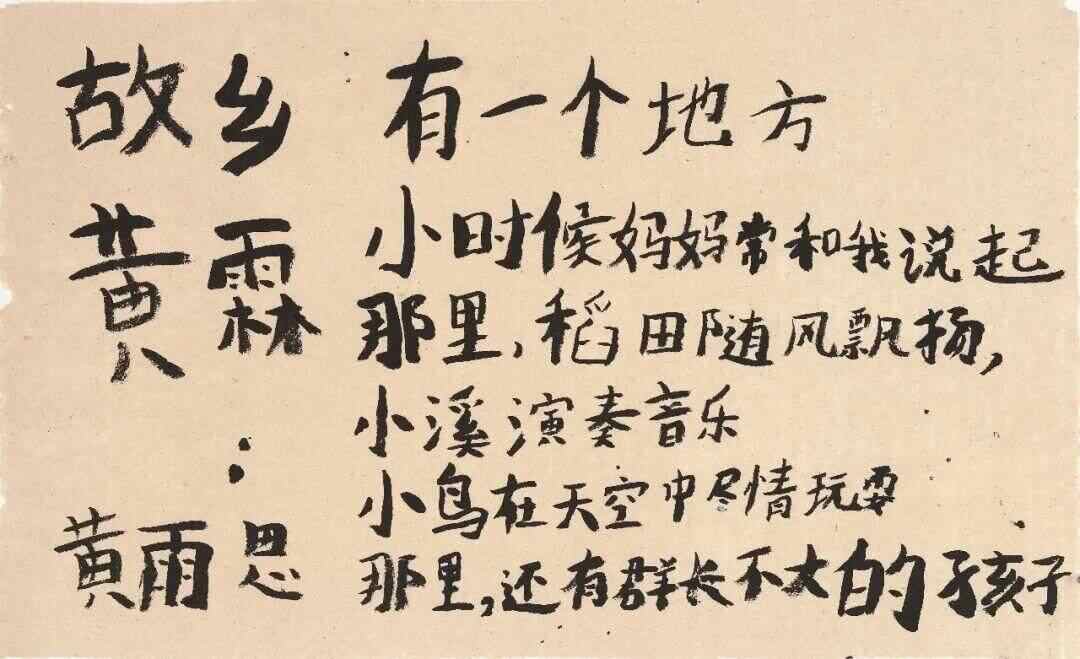 故乡
黄霖
黄雨思
有一个地方
小时候妈妈常和我说起
那里,稻田随风飘扬,
小溪演奏音乐
小鸟在天空中尽情玩耍
那里,还有群长不大的孩子